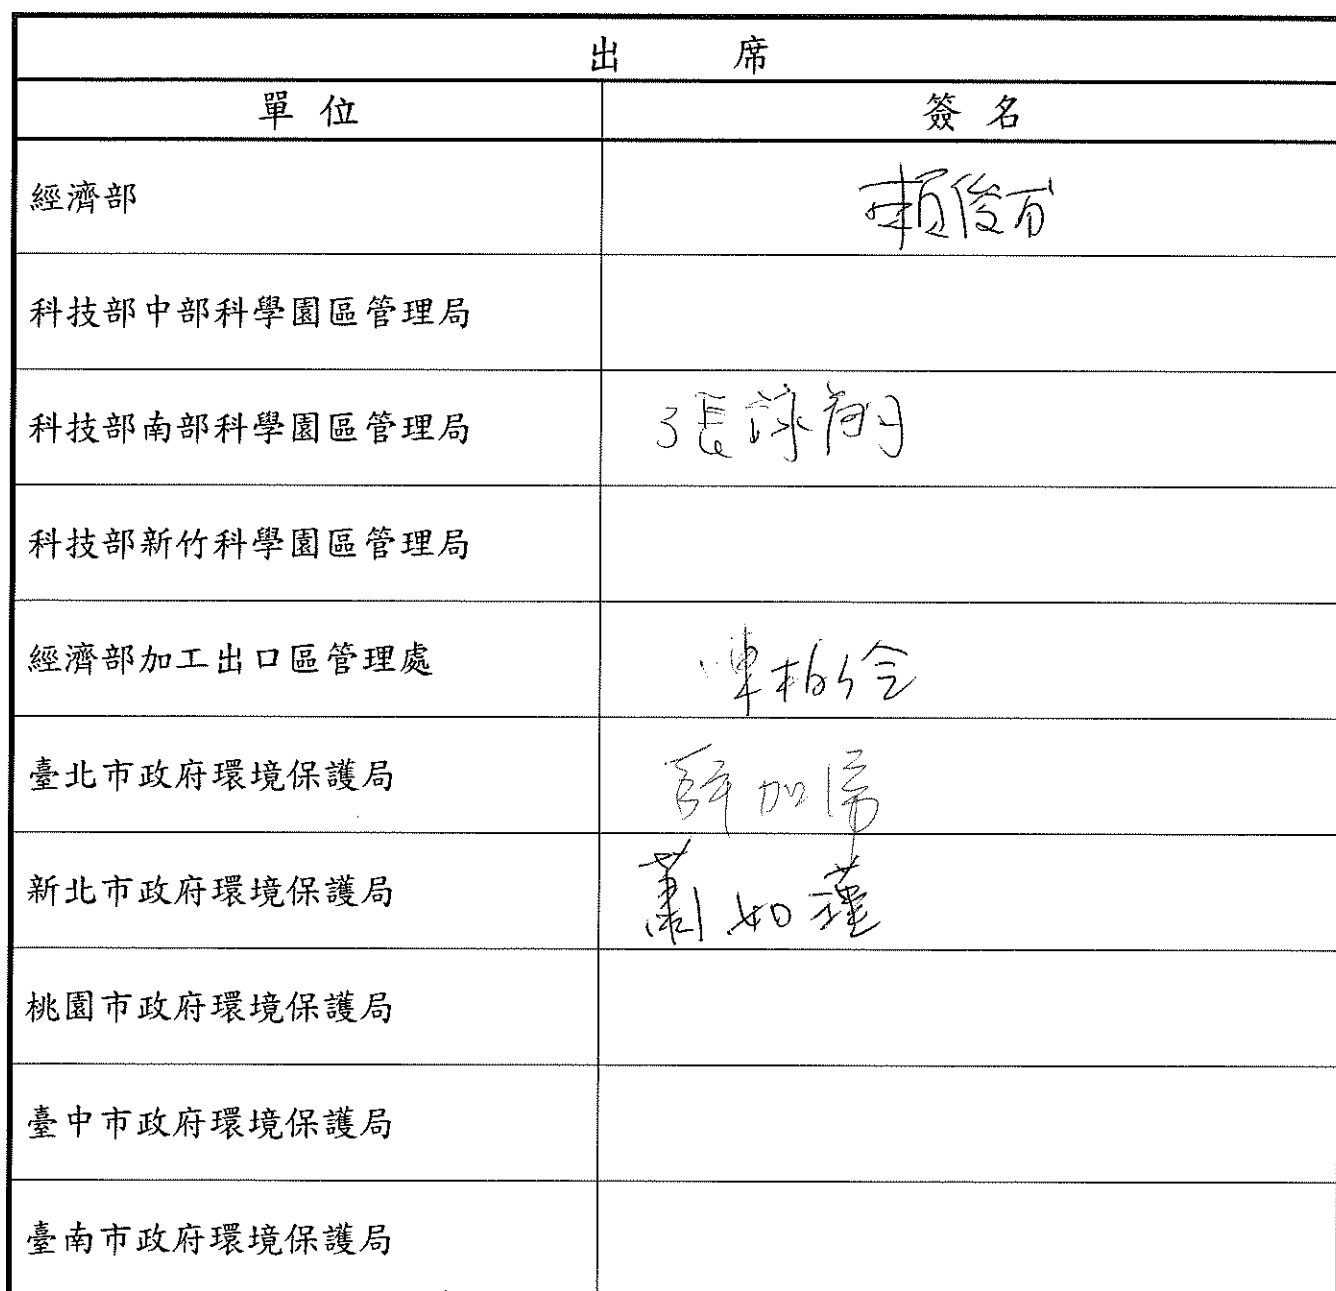 出 席
單位 簽名
經濟部 賴俊
科技部中部科學園區管理局
科技部南部科學園區管理局 張詠
科技部新竹科學園區管理局
經濟部加工出口區管理處 陳柏
臺北市政府環境保護局 薛加
新北市政府環境保護局 蕭如瑾
桃園市政府環境保護局
臺中市政府環境保護局
臺南市政府環境保護局